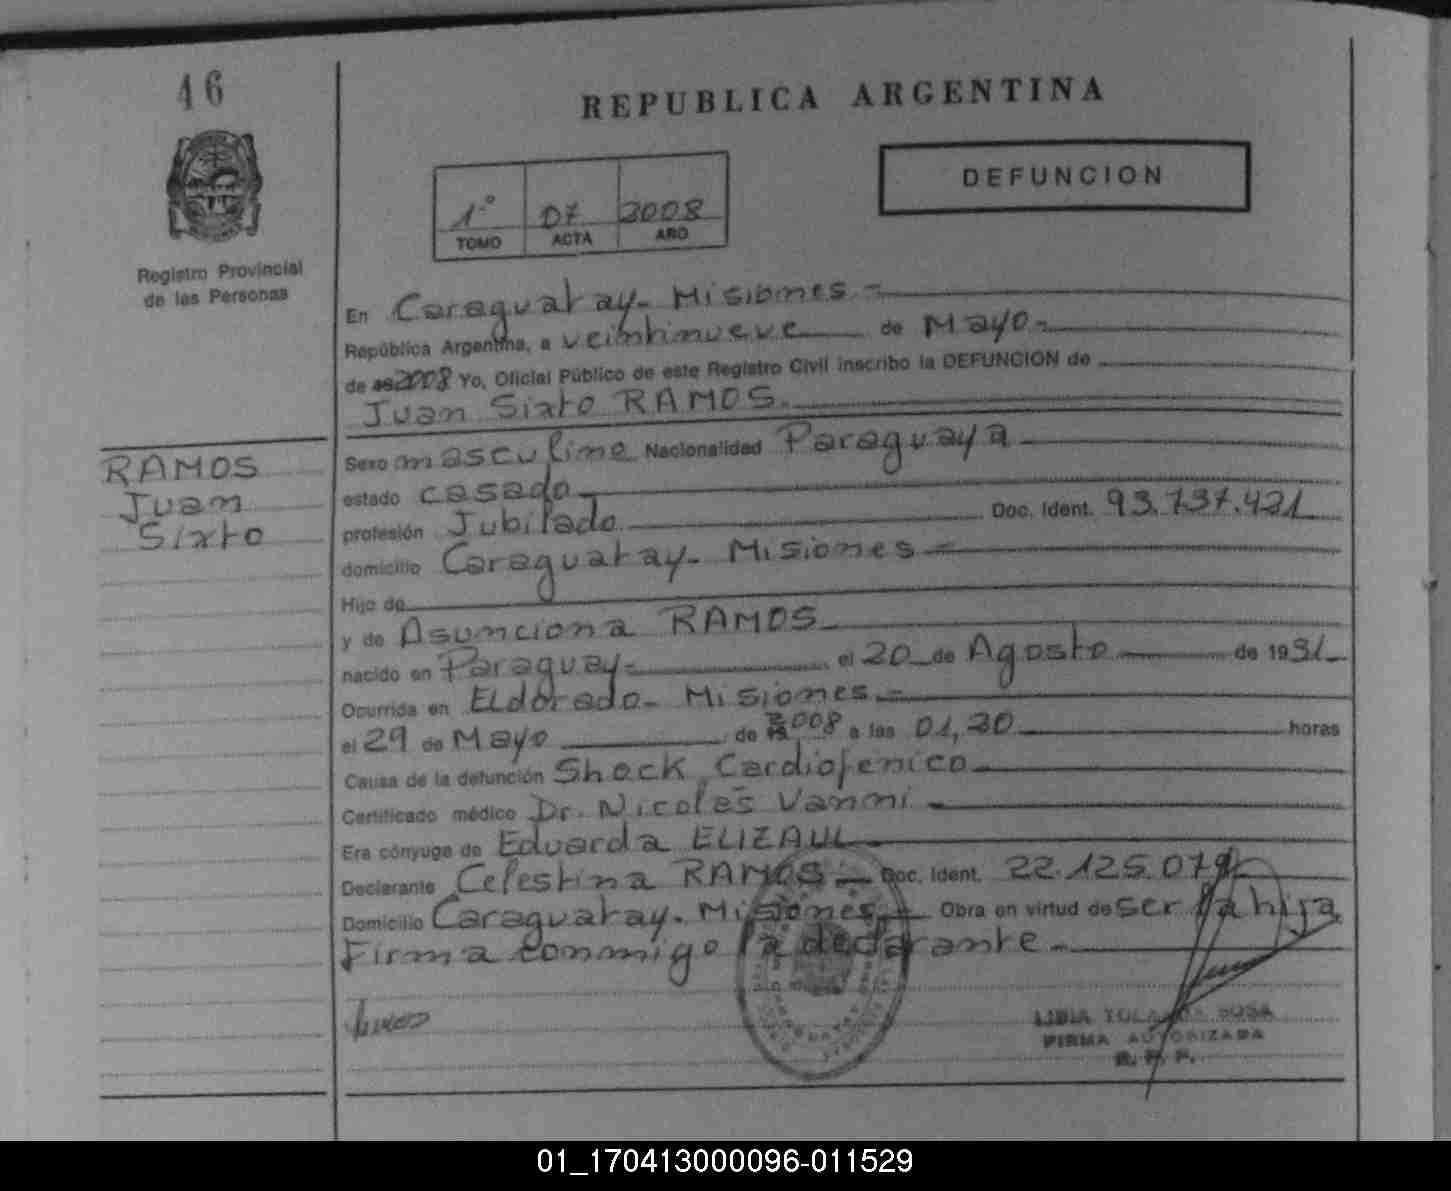 16
REPUBLICA ARGENTINA
DEFUNCION
1º 07 2008
TOMO ACTA AÑO
Registro Provincial
de las Personas
En Caraguatay - Misiones -
República Argentina, a veintinueve de Mayo -
de 2008 Yo, Oficial Público de este Registro Civil inscribo la DEFUNCION de
Juan Sixto RAMOS.
RAMOS
Juan
Sixto
Sexo masculino Nacionalidad Paraguaya
estado casado
profesión Jubilado Doc. Ident. 93.737.421
domicilio Caraguatay - Misiones -
Hijo de
y de Asunciona RAMOS
nacido en Paraguay - el 20 de Agosto de 1931
Ocurrida en Eldorado - Misiones -
el 29 de Mayo de 2008 a las 01,30 horas
Causa de la defunción Shock Cardiogenico
Certificado médico Dr. Nicolás Vanni -
Era cónyuge de Eduarda ELIZAUL
Declarante Celestina RAMOS Doc. Ident. 22.125.079
Domicilio Caraguatay - Misiones Obra en virtud de ser la hija
Firma conmigo la declarante -
FIRMA AUTORIZADA
01_170413000096-011529